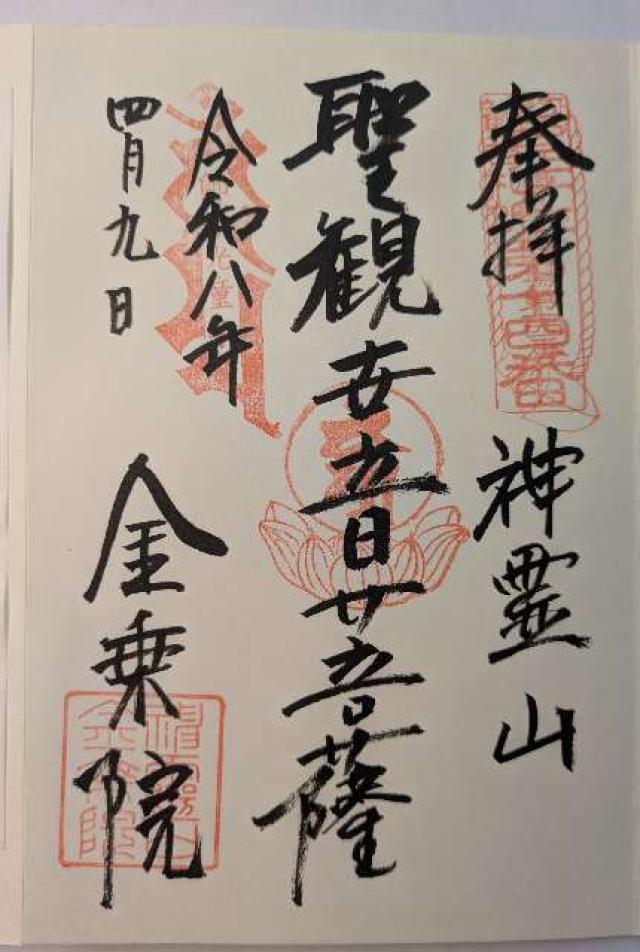 奉拝
神霊山
聖観世音菩薩
令和八年
四月九日
金乗院